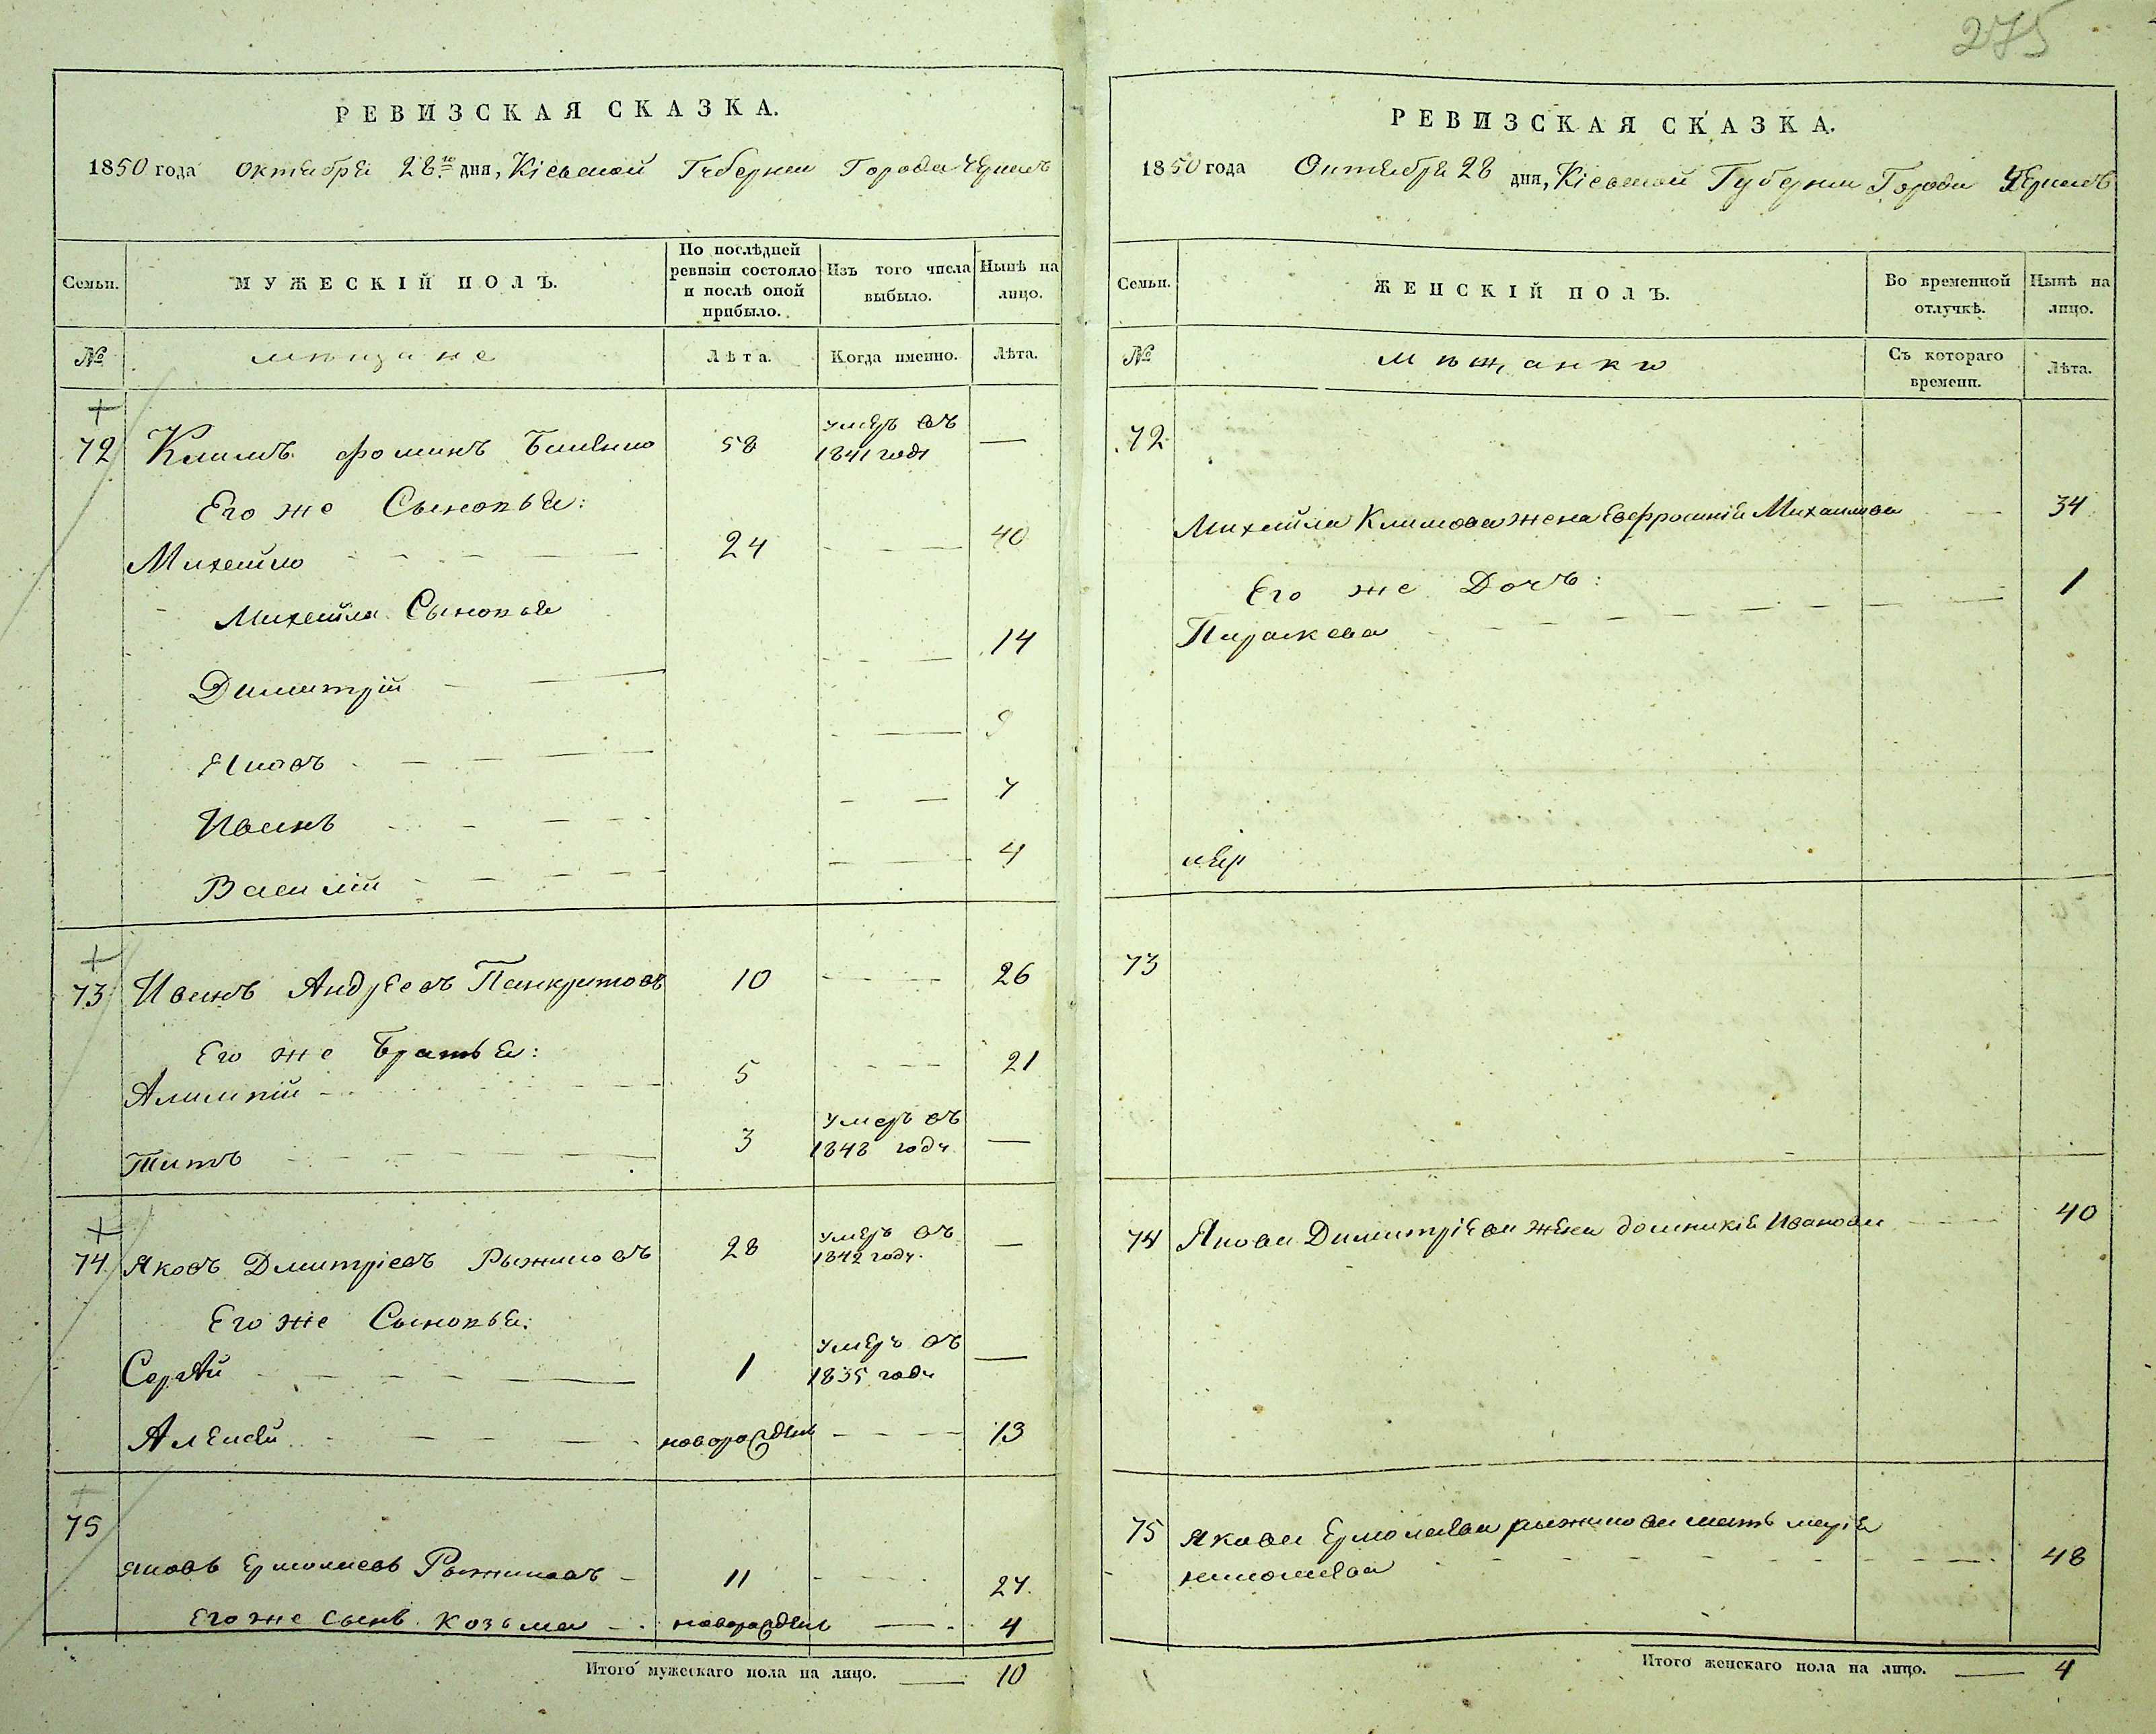 275
РЕВИЗСКАЯ СКАЗКА.
1850 года Октября 28го дня, Кіевской Губерніи Города
Семьи. МУЖЕСКІЙ ПОЛЪ. По послѣдней ревизіи состояло и послѣ оной прибыло. Изъ того числа выбыло. Нынѣ на лицо.
№ мѣщане Лѣта. Когда именно. Лѣта.
72 Климъ Фоминъ 58 умеръ въ 1841 годѣ —
Его же Сыновья:
Михайло 24 — 40
Михайла Сыновья
Димитрій — 14
Яковъ — 9
Иванъ — 7
Василій — 4
73 Иванъ Андреевъ Панкратовъ 10 — 26
Его же Братья:
Алимпій 5 — 21
Титъ 3 умеръ въ 1848 году —
74 Яковъ Дмитріевъ Рыжиковъ 28 умеръ въ 1842 году. —
Его же Сыновья:
Сергѣй 1 умеръ въ 1835 году —
Алексѣй новорожден — 13
75
Яковъ Ермолаевъ Рыжиковъ 11 — 27
Его же сынъ Козьма новорожден — 4
Итого мужескаго пола на лицо. — 10
РЕВИЗСКАЯ СКАЗКА.
1850 года Октября 28 дня, Кіевской Губерніи Города
Семьи. ЖЕНСКІЙ ПОЛЪ. Во временной отлучкѣ. Нынѣ на лицо.
№ Мѣщанки Съ котораго времени. Лѣта.
72
Михайла Климова жена Евфросинія Михайлова — 34
Его же Дочь:
Параскева — 1
73
74 Якова Димитріева жена Домникія Иванова — 40
75 Якова Ермолаева Рыжикова мать Марія
Николаева — 48
Итого женскаго пола на лицо. — 4